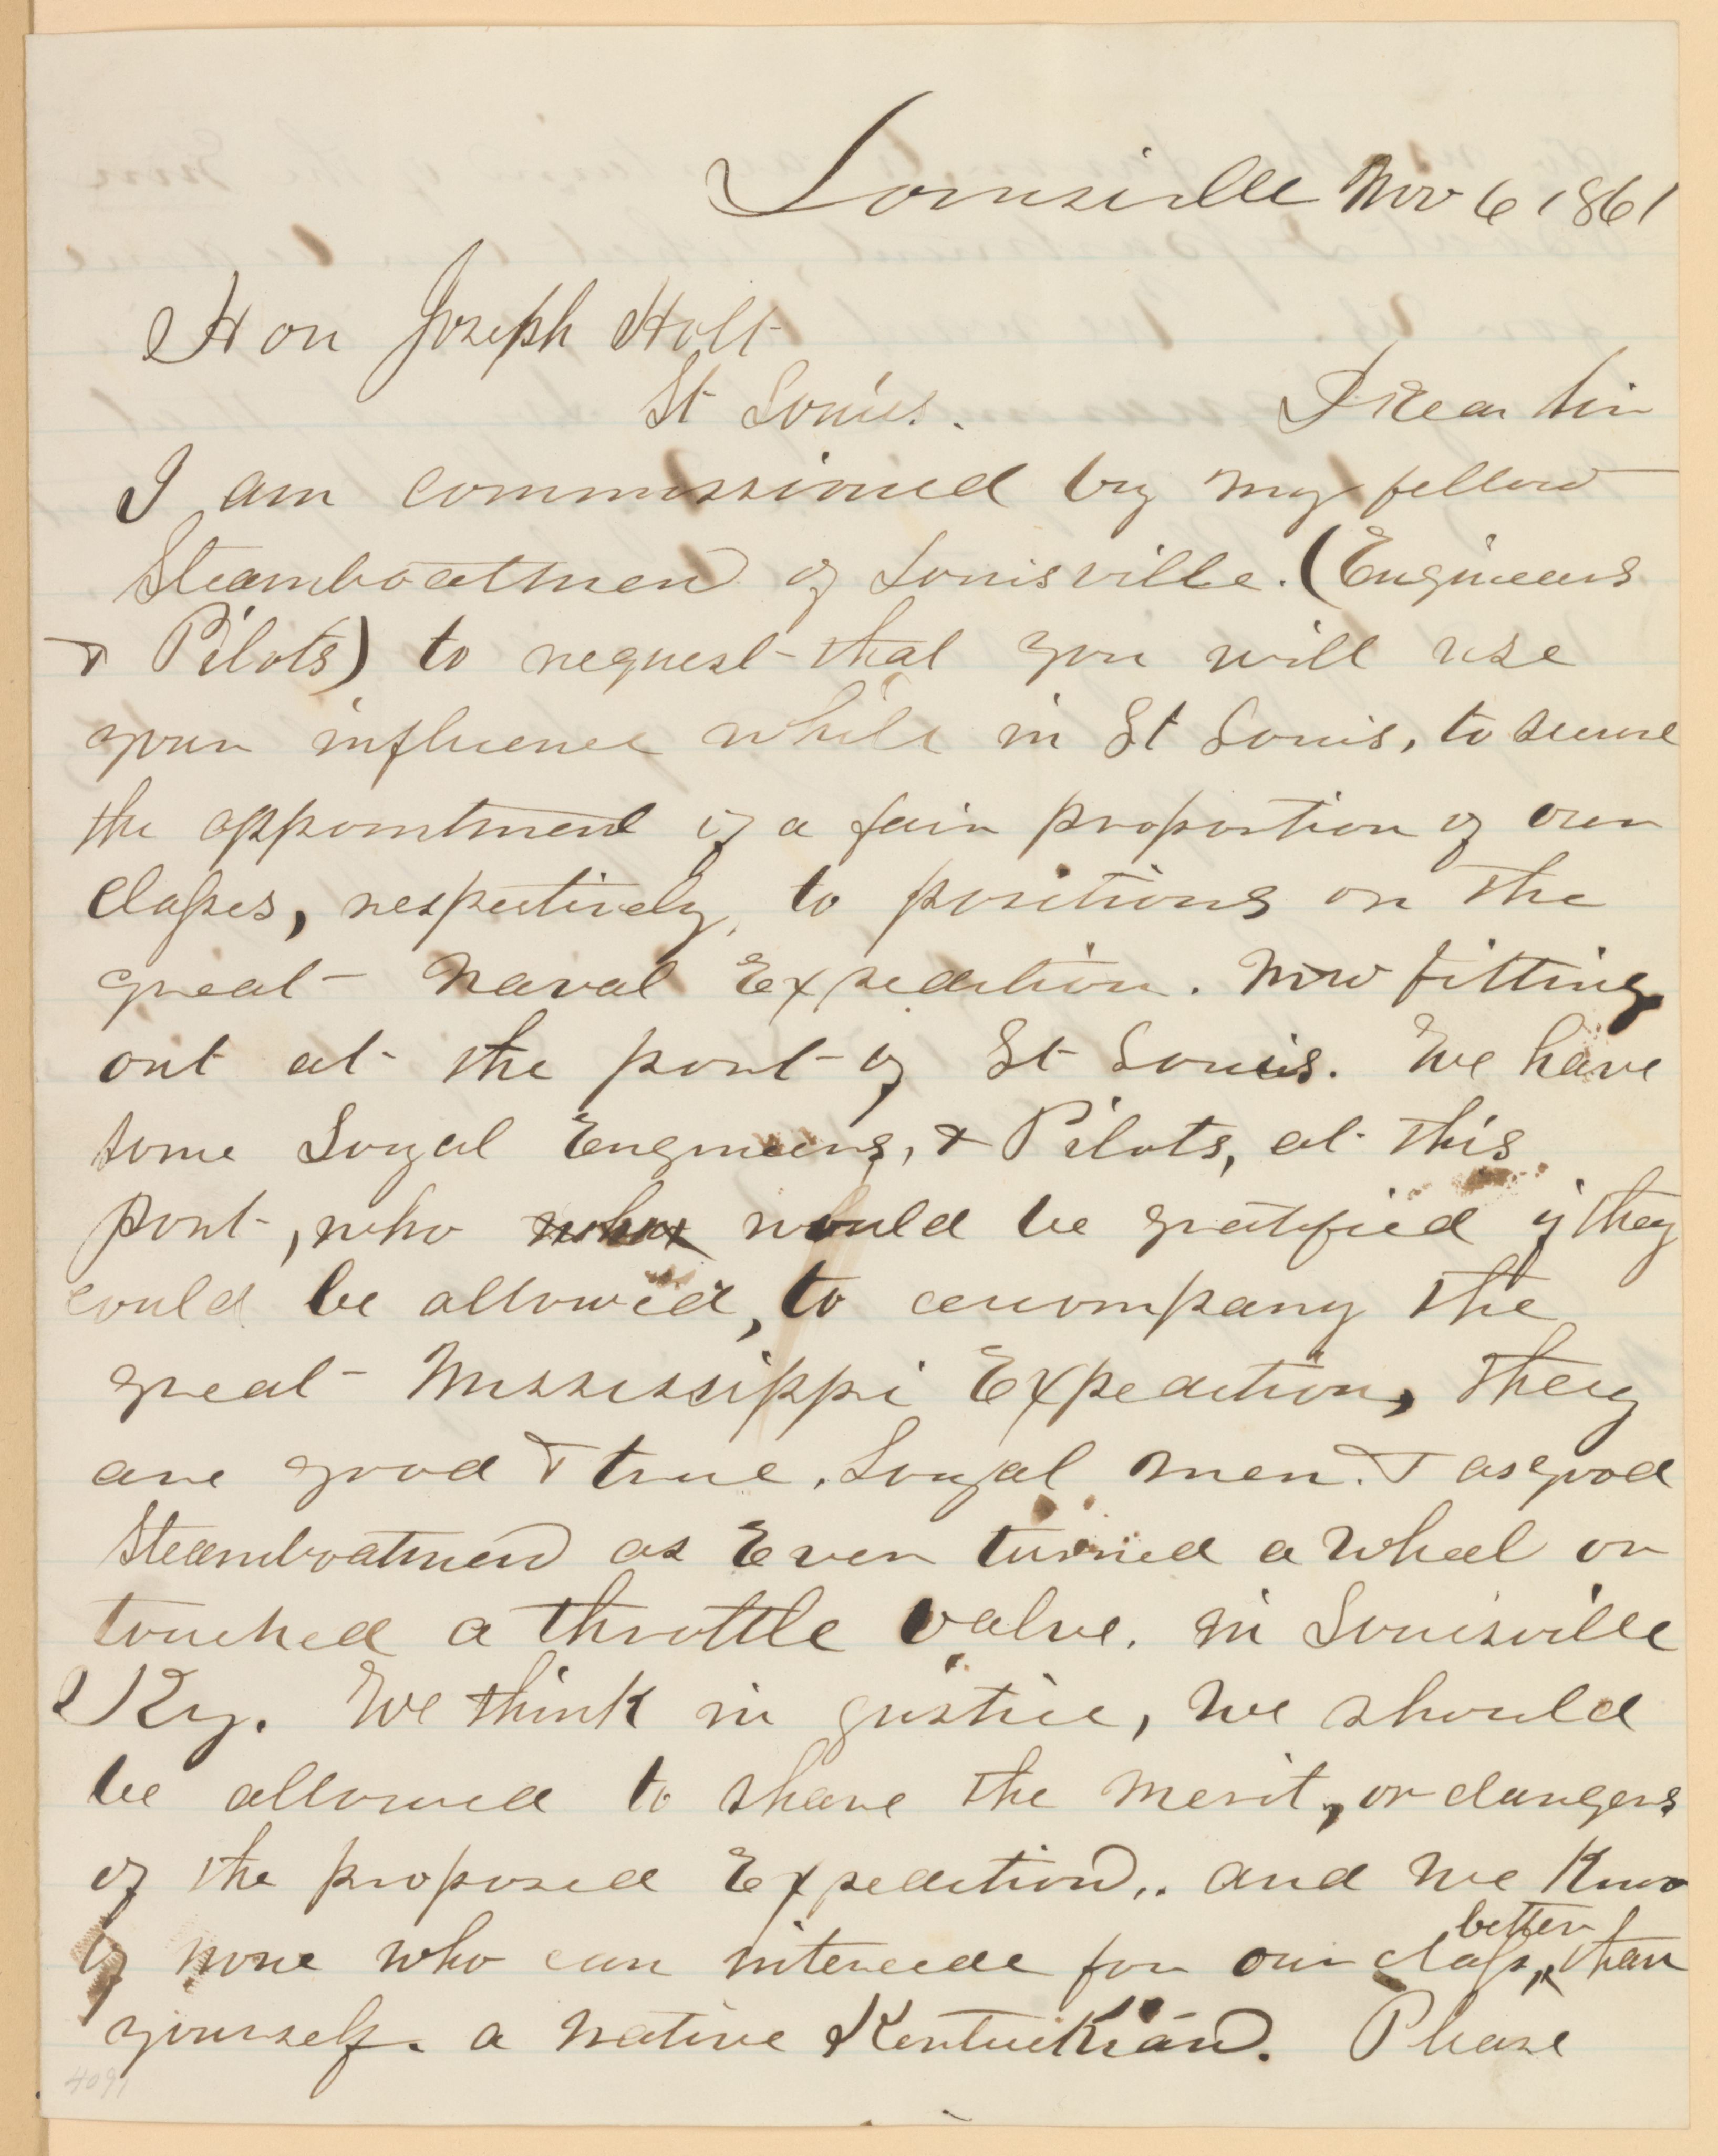 Louisville Nov 6 1861
Hon Joseph Holt
St Louis. Dear Sir
I am commissioned by my fellow
Steamboatmen of Louisville. (Engineers
& Pilots) to request that you will use
your influence while in St Louis, to secure
the appointment of a fair proportion of our
classes, respectively, to positions on the
great Naval Expedition. Now fitting
out at the port of St Louis. We have
some Loyal Engineers, & Pilots, at this
port, who who would be gratified if they
could be allowed, to accompany the
great Mississippi Expedition, they
are good & true. Loyal men. & as good
Steamboatmen as Ever turned a wheel or
touched a throttle valve. in Louisville
Ky. We think in justice, we should
be allowed to share the merit, or dangers
of the proposed Expedition,. and we Know
better
of none who can intercede for our class, than
yourself. a native Kentuckian. Please
4091